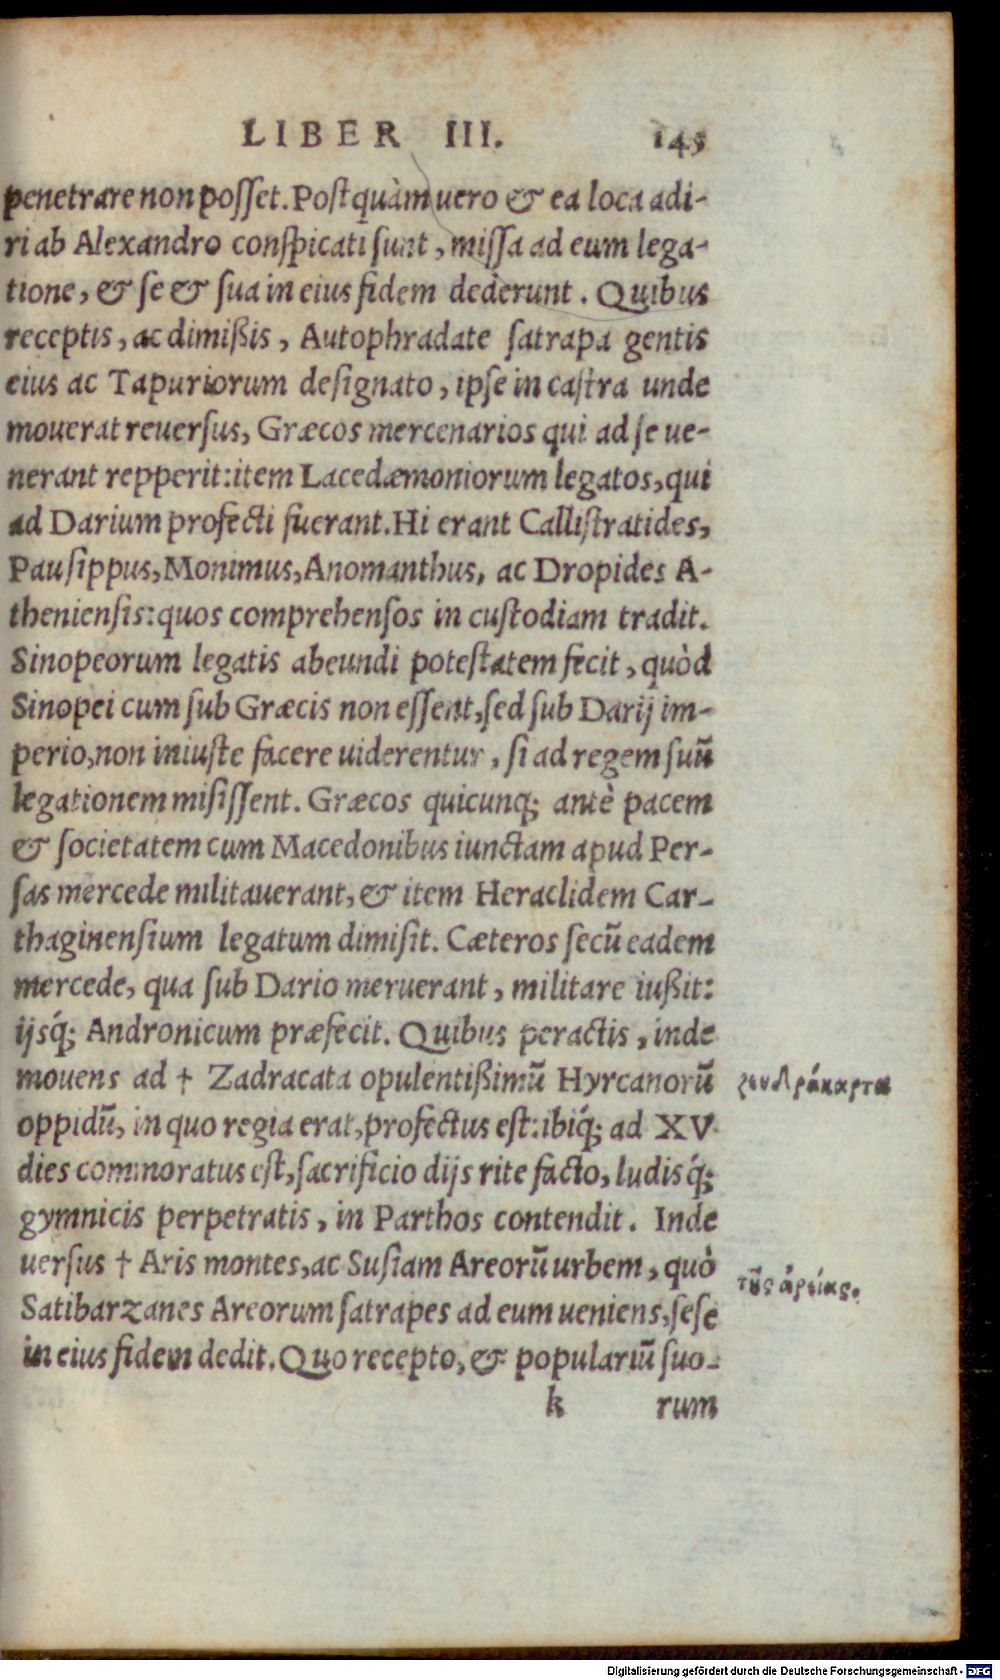 LIBER III. 145
penetrare non posset. Postquàm vero & ea loca adi-
ri ab Alexandro conspicati sunt, missa ad eum lega-
tione, & se & sua in eius fidem dederunt. Quibus
receptis, ac dimißis, Autophradate satrapa gentis
eius ac Tapuriorum designato, ipse in castra unde
mouerat reuersus, Græcos mercenarios qui ad se ue-
nerant repperit: item Lacedæmoniorum legatos, qui
ad Darium profecti fuerant. Hi erant Callistratides,
Pausippus, Monimus, Anomanthus, ac Dropides A-
theniensis: quos comprehensos in custodiam tradit.
Sinopeorum legatis abeundi potestatem fecit, quòd
Sinopei cum sub Græcis non essent, sed sub Darij im-
perio, non iniuste facere uiderentur, si ad regem suū
legationem misissent. Græcos quicunq; antè pacem
& societatem cum Macedonibus iunctam apud Per-
sas mercede militauerant, & item Heraclidem Car-
thaginensium legatum dimisit. Cæteros secū eadem
mercede, qua sub Dario meruerant, militare iußit:
ijsq́; Andronicum præfecit. Quibus peractis, inde
mouens ad † Zadracata opulentißimū Hyrcanorū
ζευδράκαρτα
oppidū, in quo regia erat, profectus est: ibiq́; ad XV.
dies commoratus est, sacrificio dijs rite facto, ludisq́;
gymnicis perpetratis, in Parthos contendit. Inde
uersus † Aris montes, ac Susiam Areorū urbem, quò
τῆς ἀρείας.
Satibarzanes Areorum satrapes ad eum ueniens, sese
in eius fidem dedit. Quo recepto, & populariū suo-
k rum
Digitalisierung gefördert durch die Deutsche Forschungsgemeinschaft - DFG